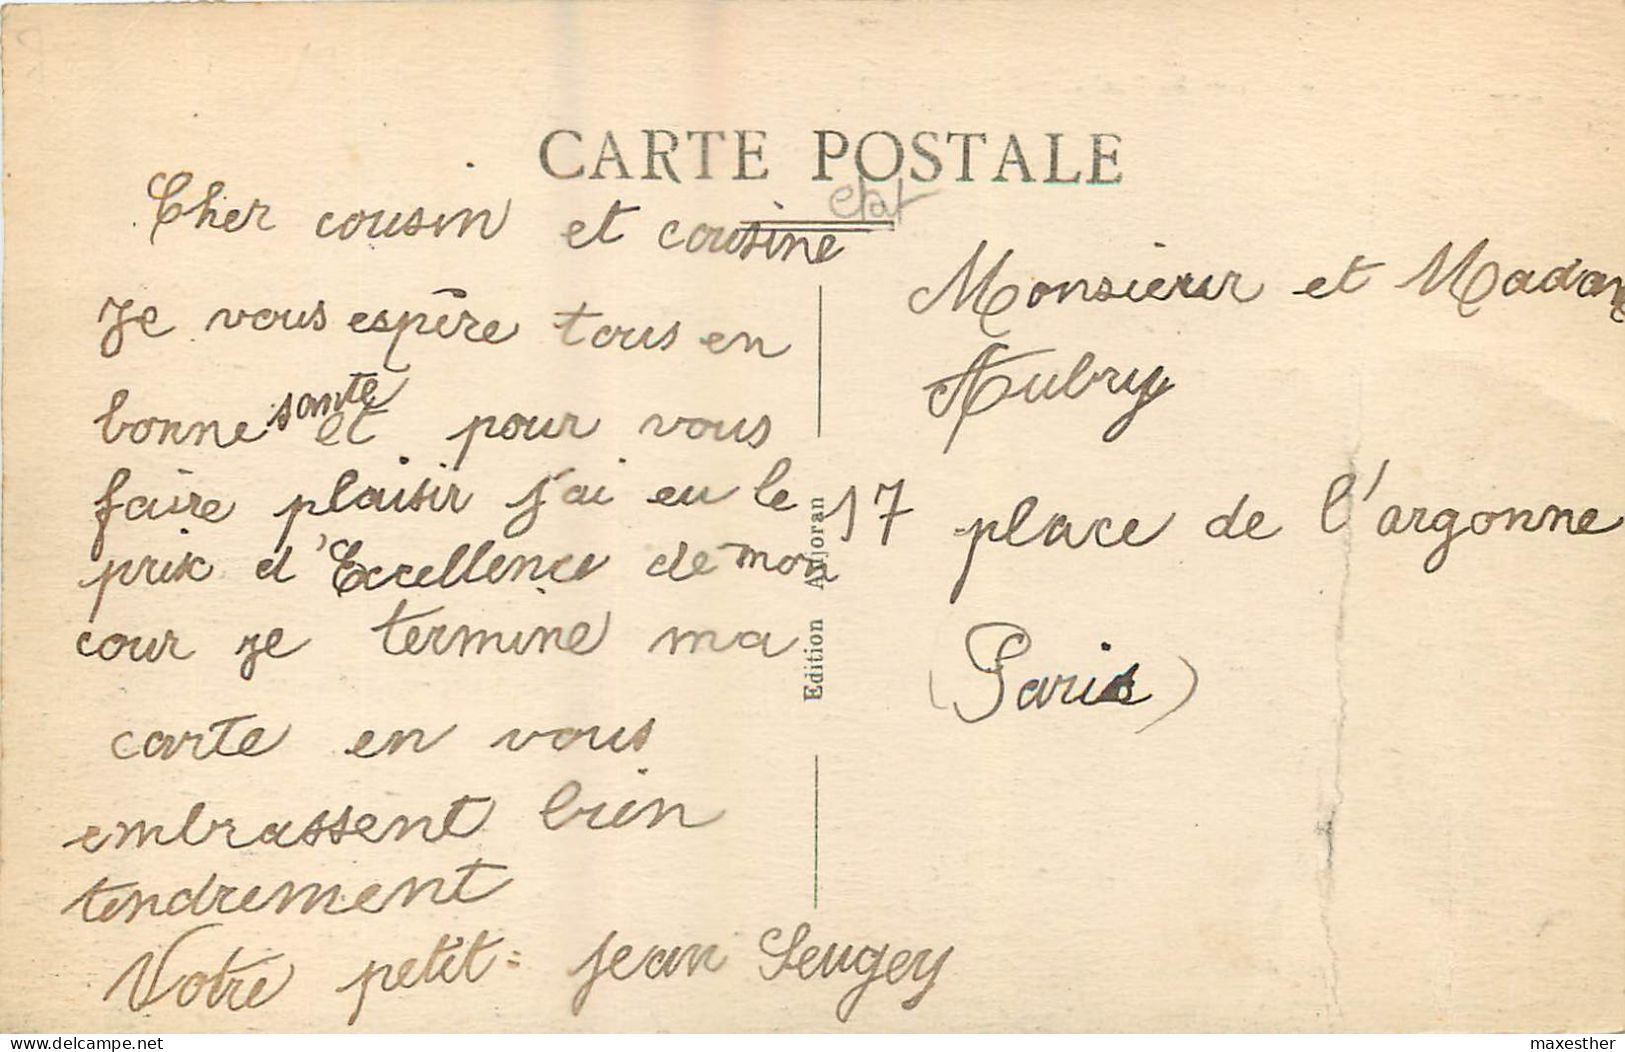 CARTE POSTALE
Cher cousin et cousine
Je vous espère tous en
bonne santé et pour vous
faire plaisir j'ai eu le
prix d'Excellence de mon
cour je termine ma
carte en vous
embrassent bien
tendrement
Votre petit = jean
Edition Anjoran
Monsieur et Madam
Aubry
17 place de l'argonne
(Paris)
delcampe.net
maxesther